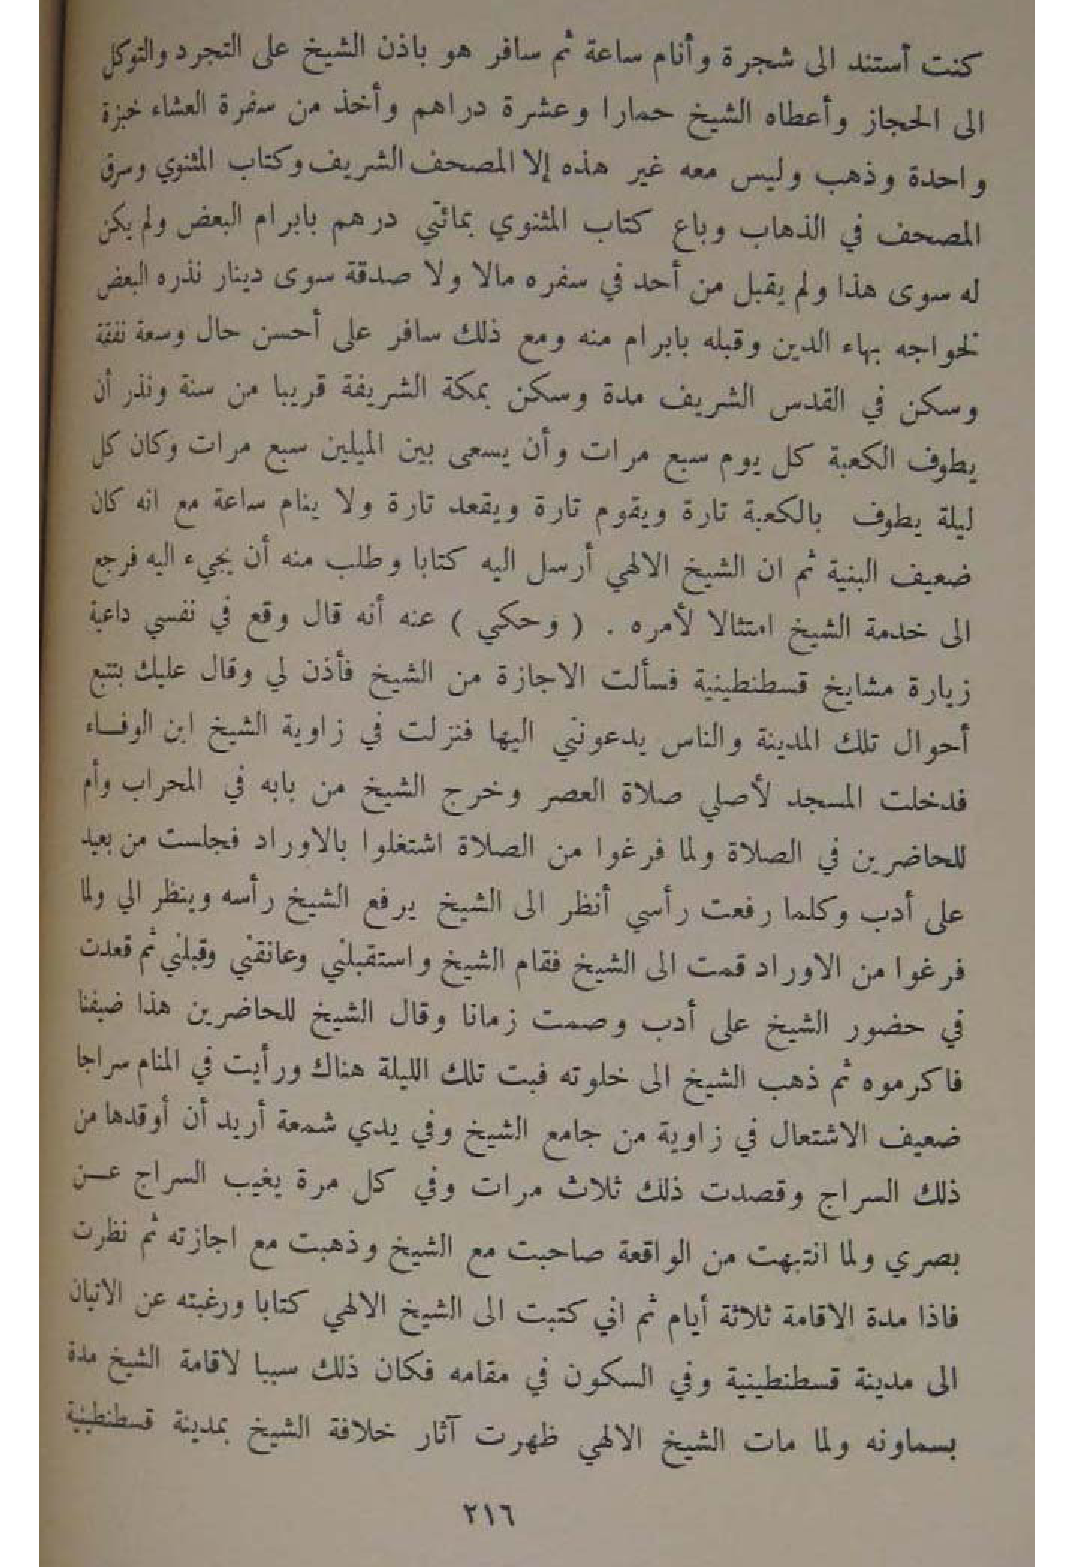 كنت أستند الى شجرة وأنام ساعة ثم سافر هو باذن الشيخ على التجرد والتوكل
الى الحجاز وأعطاه الشيخ حمارا وعشرة دراهم وأخذ من سفرة العشاء خبزة
واحدة وذهب وليس معه غير هذه إلا المصحف الشريف وكتاب المثنوي وسرق
المصحف في الذهاب وباع كتاب المثنوي بمائتي درهم بابرام البعض ولم يكن
له سوى هذا ولم يقبل من أحد في سفره مالا ولا صدقة سوى دينار نذره البعض
لخواجه بهاء الدين وقبله بابرام منه ومع ذلك سافر على أحسن حال وسعة نفقة
وسكن في القدس الشريف مدة وسكن بمكة الشريفة قريبا من سنة ونذر أن
يطوف الكعبة كل يوم سبع مرات وأن يسعى بين الميلين سبع مرات وكان كل
ليلة يطوف بالكعبة تارة ويقوم تارة ويقعد تارة ولا ينام ساعة مع انه كان
ضعيف البنية ثم ان الشيخ الالهي أرسل اليه كتابا وطلب منه أن يجيء اليه فرجع
الى خدمة الشيخ امتثالا لأمره . ( وحكي ) عنه أنه قال وقع في نفسي داعية
زيارة مشايخ قسطنطينية فسألت الاجازة من الشيخ فأذن لي وقال عليك بتتبع
أحوال تلك المدينة والناس يدعونني اليها فنزلت في زاوية الشيخ ابن الوفاء
فدخلت المسجد لأصلي صلاة العصر وخرج الشيخ من بابه في المحراب وأم
للحاضرين في الصلاة ولما فرغوا من الصلاة اشتغلوا بالاوراد فجلست من بعيد
على أدب وكلما رفعت رأسي أنظر الى الشيخ يرفع الشيخ رأسه وينظر الي ولما
فرغوا من الاوراد قمت الى الشيخ فقام الشيخ واستقبلني وعانقني وقبلني ثم قعدت
في حضور الشيخ على أدب وصمت زمانا وقال الشيخ للحاضرين هذا ضيفنا
فاكرموه ثم ذهب الشيخ الى خلوته فبت تلك الليلة هناك ورأيت في المنام سراجا
ضعيف الاشتعال في زاوية من جامع الشيخ وفي يدي شمعة أريد أن أوقدها من
ذلك السراج وقصدت ذلك ثلاث مرات وفي كل مرة يغيب السراج عن
بصري ولما انتبهت من الواقعة صاحبت مع الشيخ وذهبت مع اجازته ثم نظرت
فاذا مدة الاقامة ثلاثة أيام ثم اني كتبت الى الشيخ الالهي كتابا ورغبته عن الاتيان
الى مدينة قسطنطينية وفي السكون في مقامه فكان ذلك سببا لاقامة الشيخ مدة
بسماونه ولما مات الشيخ الالهي ظهرت آثار خلافة الشيخ بمدينة قسطنطينية
٢١٦